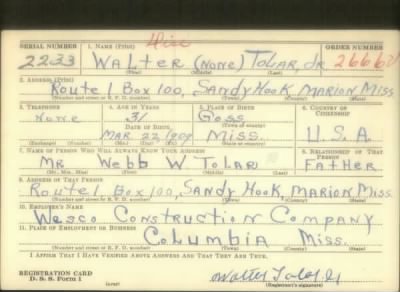 Disc
SERIAL NUMBER 1. NAME (Print) ORDER NUMBER
2233 WALTER (NONE) TOLAR, JR
(First) (Middle) (Last)
2. ADDRESS (Print)
ROUTE 1. BOX 100, SANDY HOOK, MARION MISS
(Number and street or R. F. D. number) (Town) (County) (State)
3. TELEPHONE 4. AGE IN YEARS 5. PLACE OF BIRTH 6. COUNTRY OF CITIZENSHIP
NONE 31 GOSS
DATE OF BIRTH (Town or county)
MAR. 22 1909 MISS. U.S.A
(Exchange) (Number) (Mo.) (Day) (Yr.) (State or country)
7. NAME OF PERSON WHO WILL ALWAYS KNOW YOUR ADDRESS 8. RELATIONSHIP OF THAT PERSON
MR WEBB W TOLAR FATHER
(Mr., Mrs., Miss) (First) (Middle) (Last)
9. ADDRESS OF THAT PERSON
ROUTE 1. BOX 100, SANDY HOOK, MARION MISS.
(Number and street or R. F. D. number) (Town) (County) (State)
10. EMPLOYER'S NAME
WESCO CONSTRUCTION COMPANY
11. PLACE OF EMPLOYMENT OR BUSINESS
COLUMBIA MISS.
(Number and street or R. F. D. number) (Town) (County) (State)
I AFFIRM THAT I HAVE VERIFIED ABOVE ANSWERS AND THAT THEY ARE TRUE.
REGISTRATION CARD
D. S. S. Form 1 (over) Walter Tolar Jr
(Registrant's signature)